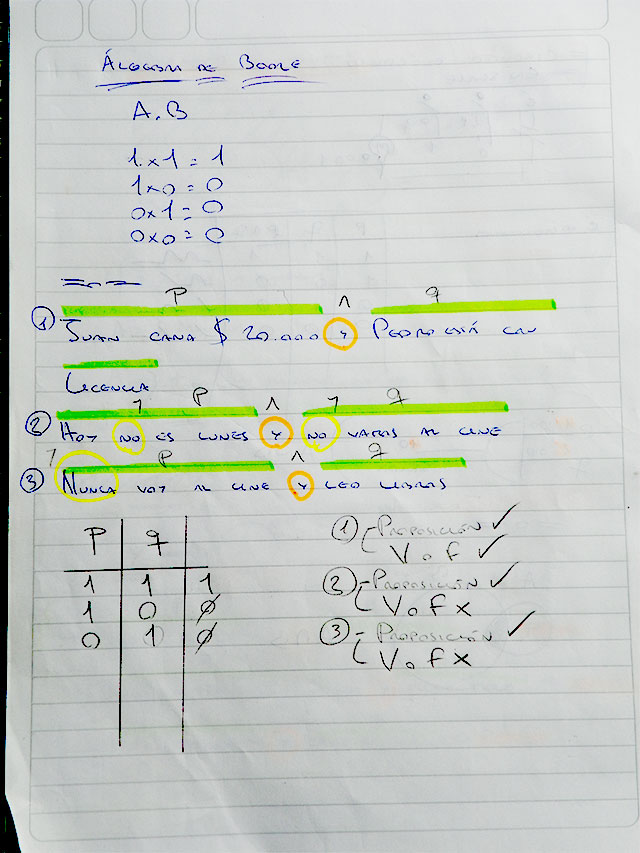 Álgebra de Boole
A.B
1 x 1 = 1
1 x 0 = 0
0 x 1 = 0
0 x 0 = 0
P ∧ q
① Juan gana $ 20.000 y Pedro está con
Licencia
¬ P ∧ ¬ q
② Hoy no es lunes y no vamos al cine
¬ P ∧ q
③ Nunca voy al cine y leo libros
P q
1 1 1
1 0 0
0 1 0
① - Proposición ✓
V o F ✓
② - Proposición ✓
V o F x
③ - Proposición ✓
V o F x